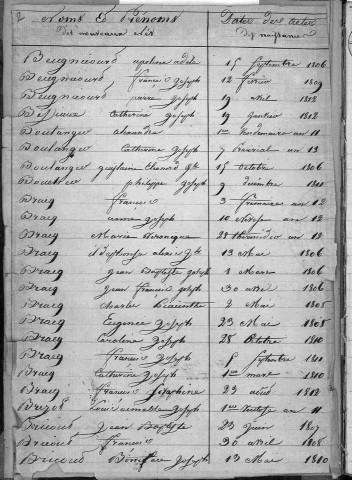 2 Noms & Prénoms Dates des actes
des nouveaux nés De naissance
Beugncourd apoline adele 15 Septembre 1806
Beugncourd francois Joseph 12 fevrier 1809
Beugncourd pierre Joseph 19 avril 1812
Catherine Joseph 19 Janvier 1812
Boulanger alexandre 1er Vendemiaire an 11
Boulanger Catherine Joseph 7 prairial an 13
Boulanger guislaine 15 octobre 1806
philippe Joseph 9 décembre 1810
Bracq francois 3 frimaire an 12
Bracq anne Joseph 10 nivose an 12
Bracq Marie Veronique 28 thermidor an 12
Bracq Baptiste alexis 13 Mai 1806
Bracq Jean Baptiste Joseph 1 Mars 1806
Bracq Jean francois Joseph 30 avril 1806
Bracq Charles hiacinthe 2 Mai 1808
Bracq Eugenie Joseph 23 Mai 1808
Bracq Caroline Joseph 28 Octobre 1810
Bracq francois Joseph 5 Septembre 1810
Bracq Catherine Joseph 1er mars 1810
Bracq francois Seraphine 23 aout 1812
Joseph 1er an 11
Bricout Jean Baptiste 23 Juin 1807
Bricout francois 30 avril 1808
Bricout Boniface Joseph 13 Mai 1810